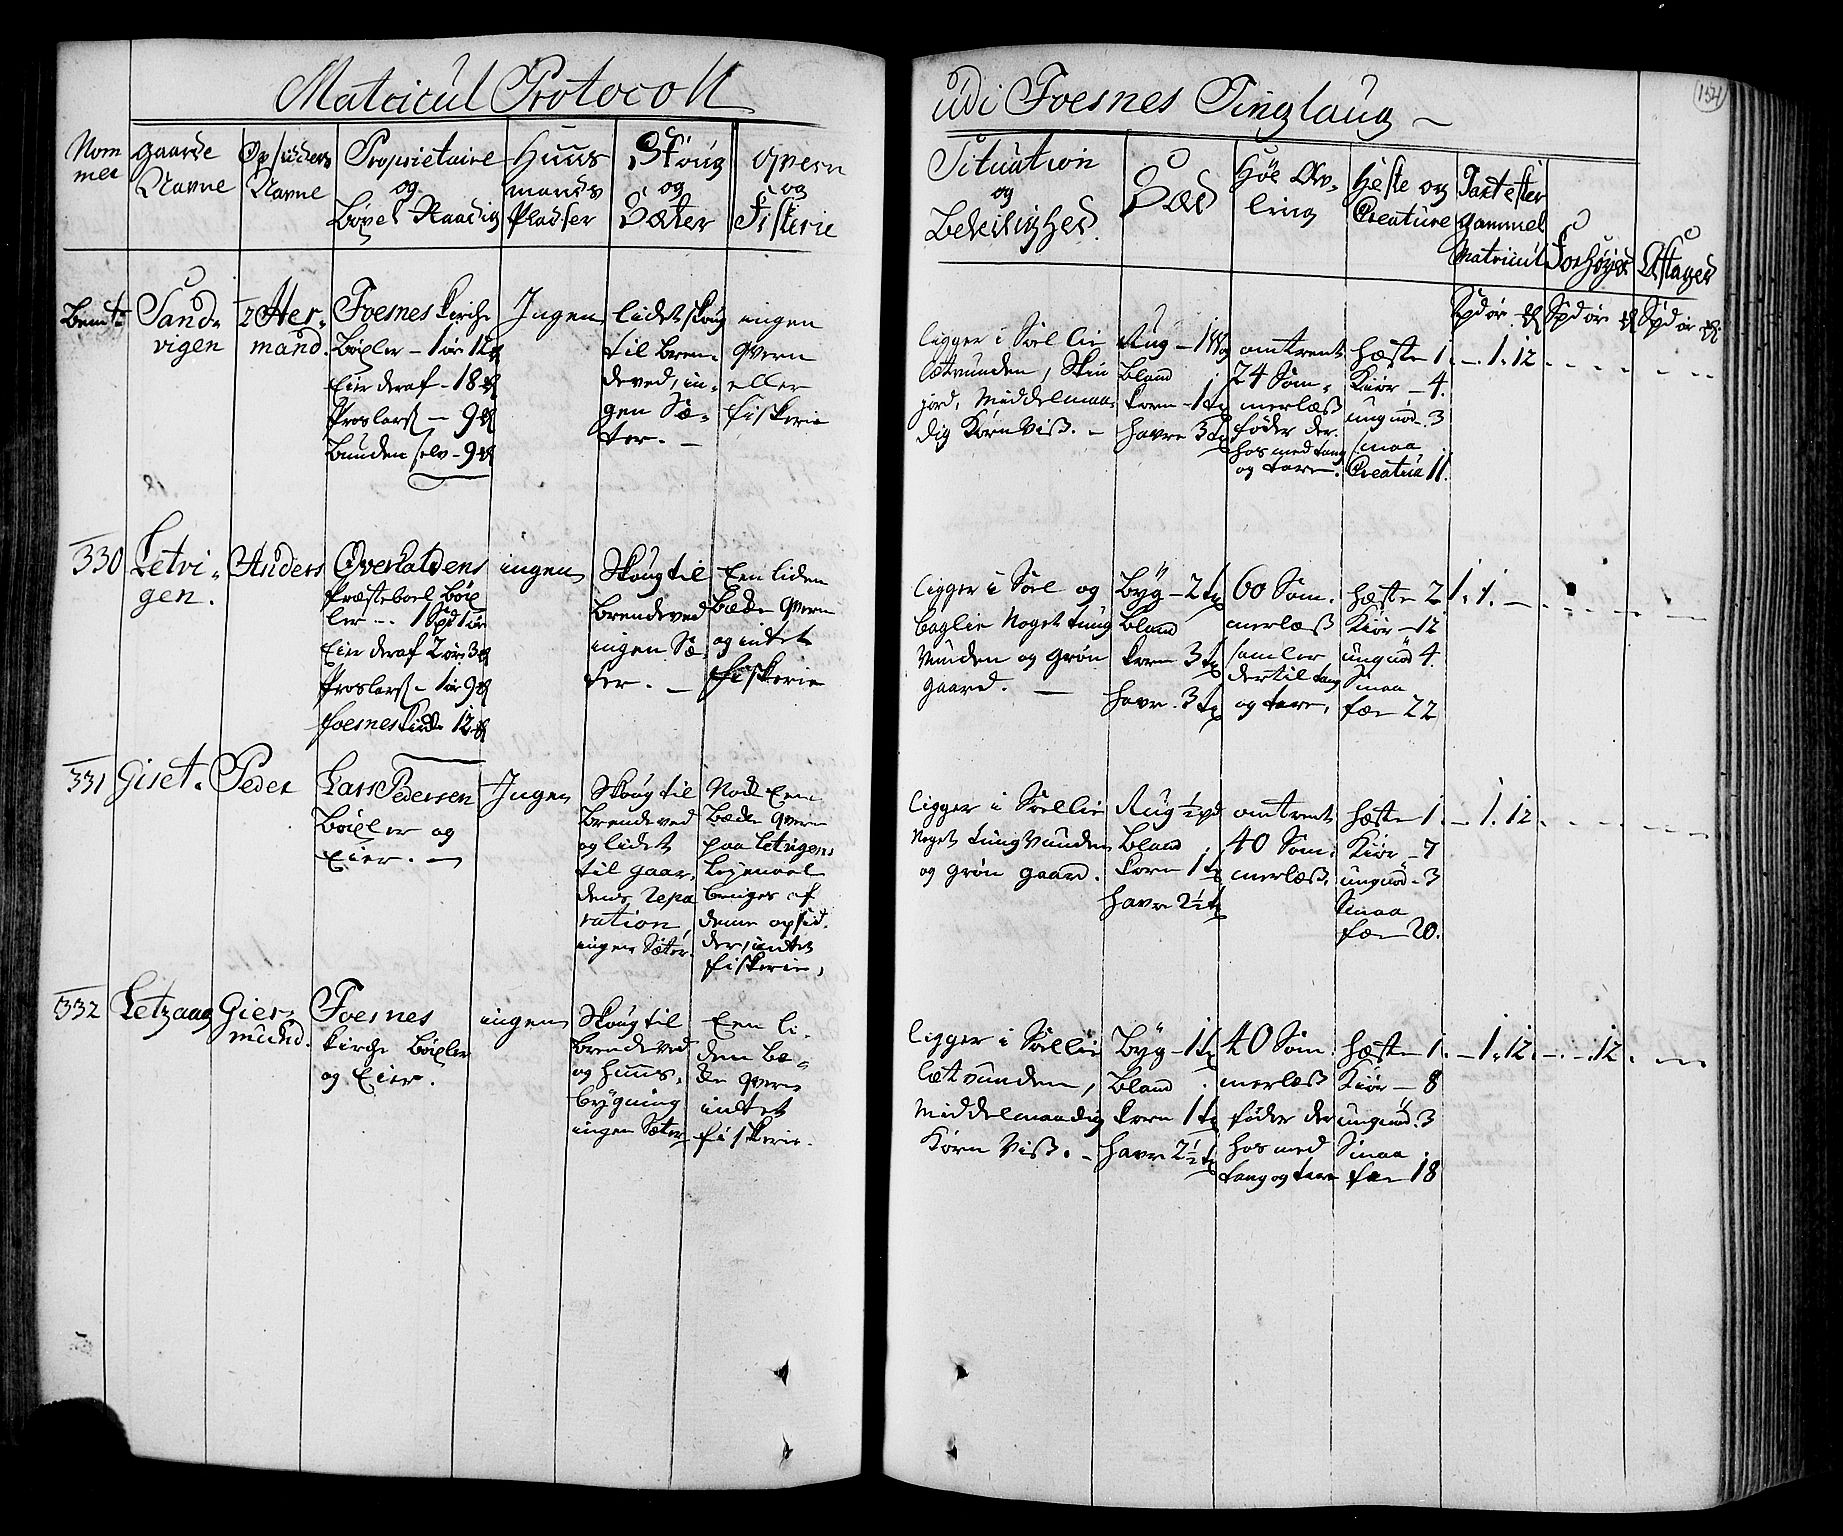 Matricul Protocoll
udi Foesnes Tinglaug
154
Nom
mer
gaards
Navne
Opsidders
Navne
Proprietaire
og
Bøxel Raadig
Huus
mands
Pladser
Skoug
og
Sæter
Qvern
og
Fiskerie
Situation
og
Beleilighed.
Sæd
Høe Av-
ling
Heste og
Creature
Taxt efter
gammel
Matricul
Forhøyes
Aftages
Spd ør
Spd ør
Spd ør
Sand-
vigen
2 Her-
mand.
Foesnes Kirche
Bøxler - 1 ør 12
Eier deraf - 18
- 9
Bunden selv - 9
Ingen
lidet skoug
til Bren-
deved, in-
gen Sæ-
ter. -
ingen
Qvern
eller
fiskerie
ligger i Soel lie
lætvunden, Skin
jord, Middelmaa-
dig Kornviss. -
Rug - 1
Bland
korn - 1 t
havre 3 t
omtrent
24 Som-
merlæss
føder der-
hos med tang
og tare.
Hæste 1.
Kiør - 4.
ungnød. 3
smaa
Creatur 11.
- . 1. 12
330
Letvi-
gen.
Anders
Overhaldens
Præsteboel Bøx
ler - . 1 Spd 1 ør
Eier deraf 2 ør 3
- 1 ør 9
foesnes Kirke 12
ingen
Skoug til
Brendeved
ingen Sæ-
ter. -
Een liden
Bæcke Qvern
og intet
fiskerie
ligger i Soel og
baglie Noget tung
Vunden og grøn
gaard. -
Byg - 2 t
Bland
korn 3 t
havre. 3 t
60 Som-
merlæss
samler
dertil tang
og tare,
Hæste 2
Kiør - 12
ungnød 4.
Smaa
fæe 22
1. 1. -
331
Giset.
Peder
Lars Pedersen
Bøxler og
Eier. -
Ingen
Skoug til
Brendeved
og lidet
til gaar-
dens repa
ration,
ingen Sæter.
Nock Een
Bæcke Qvern
paa Letvigens
bruges af
denne opsid-
der, intet
fiskerie,
ligger i Soellie
Noget tungvunden
og grøn gaard.
Rug ½
Bland
korn 1 t
havre 2½ t
omtrent
40 Som-
merlæss.
Hæste 1.
Kiør - 7
ungnød - 3
Smaa
fæe 20.
- . 1. 12.
332
Letzaag
Gier-
mund.
Foesnes
Kirche Bøxler
og Eier.
ingen
Skoug til
brendeved
og Huus-
bygning
ingen Sæter
Een li-
den Bæ-
cke Qvern
intet
fiskerie.
ligger i Soellie
lætvunden,
Middelmaadig
Kornviss. -
Byg - 1 t
Bland
korn 1 t
havre 2½ t
40 Som
merlæss
føder der
hos med
tang og tare
Hæste 1.
Kiør - 8
ungnød. 3
Smaa
fæe 18
- 1. 12. - . - . 12.